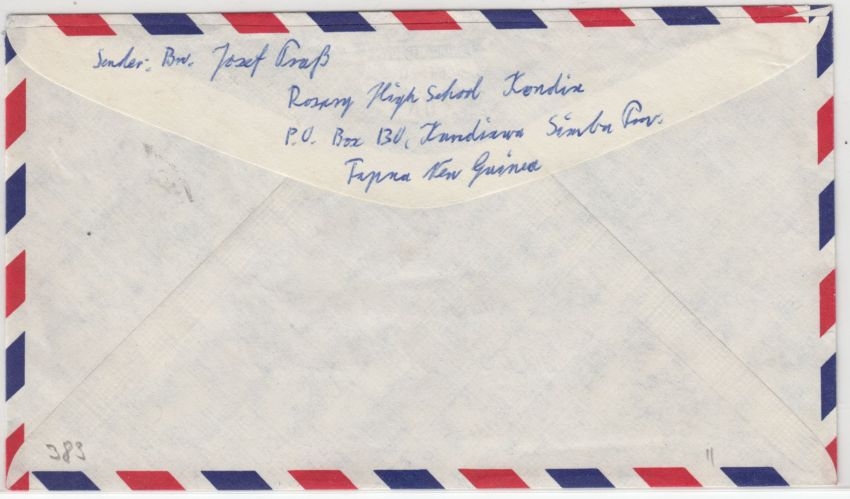 Sender: Br. Josef Praß
Rosary High School Kondiu
P.O. Box 130, Kundiawa Simbu Prov.
Papua New Guinea
383
11